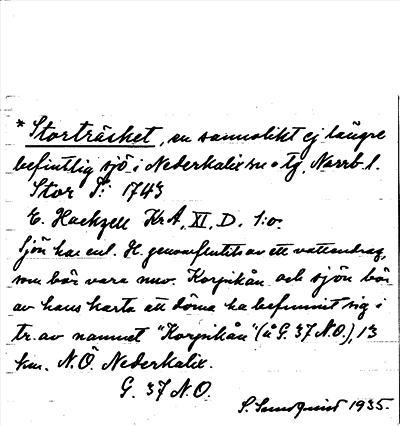 * Storträsket, en sannolikt ej längre
befintlig sjö i Nederkalix sn o tg, Norrb l.
Stor T: 1743
E. Hackzell KrA, XI, D. 1:o.
Sjön har enl. H. genomflutits av ett vattendrag,
som bör vara nuv. Korpikån och sjön bör
av hans karta att döma ha befunnit sig i
tr. av namnet "Korpikån" (å G. 37 N.O.), 13
km. N.Ö. Nederkalix.
G. 37 N.O.
S. Sundquist 1935.